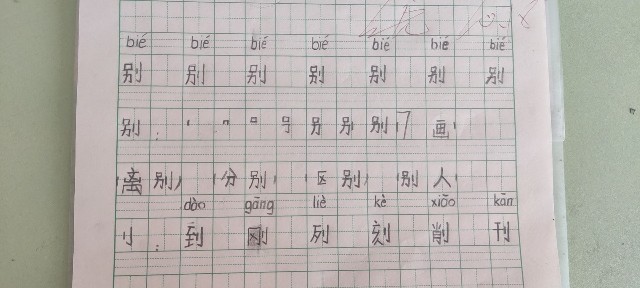 bié bié bié bié bié bié bié
别 别 别 别 别 别 别
别: 7画
(离别) (分别) (区别) (别人)
dào gāng liè kè xiāo kān
刂: 到 刚 列 刻 削 刊